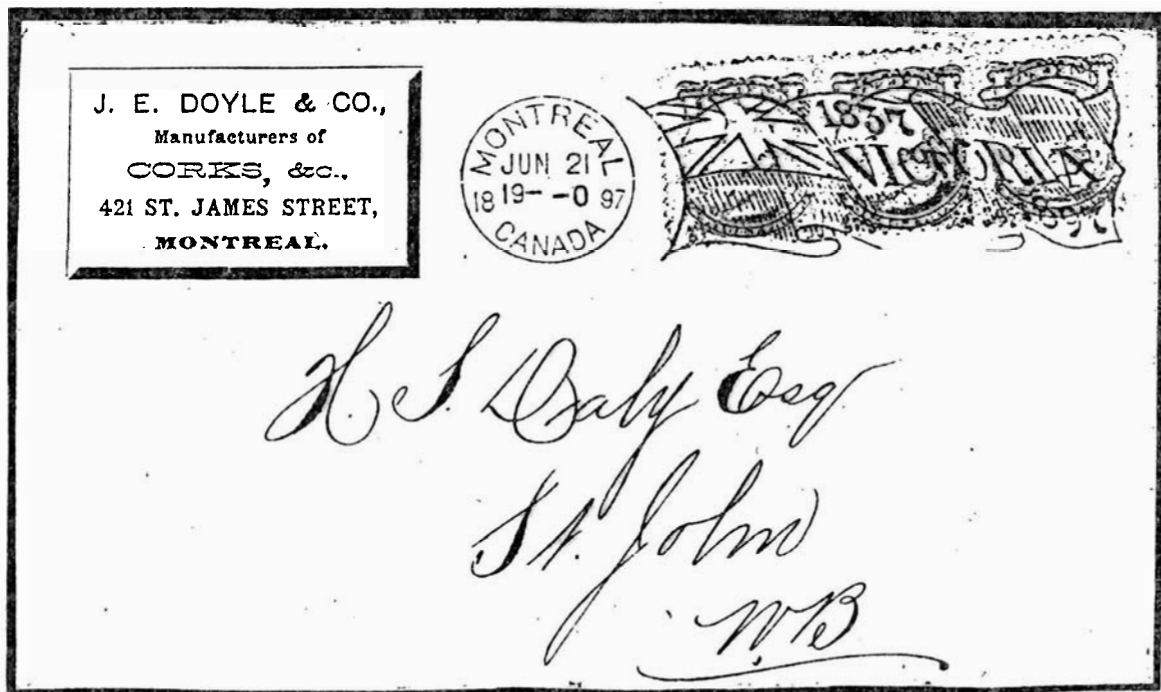 J. E. DOYLE & CO.,
Manufacturers of
CORKS, &c.,
421 ST. JAMES STREET,
MONTREAL.
MONTREAL
JUN 21
18 19--0 97
CANADA
1837
VICTORIA
1897
H. S. Daly Esq
St. John
N.B